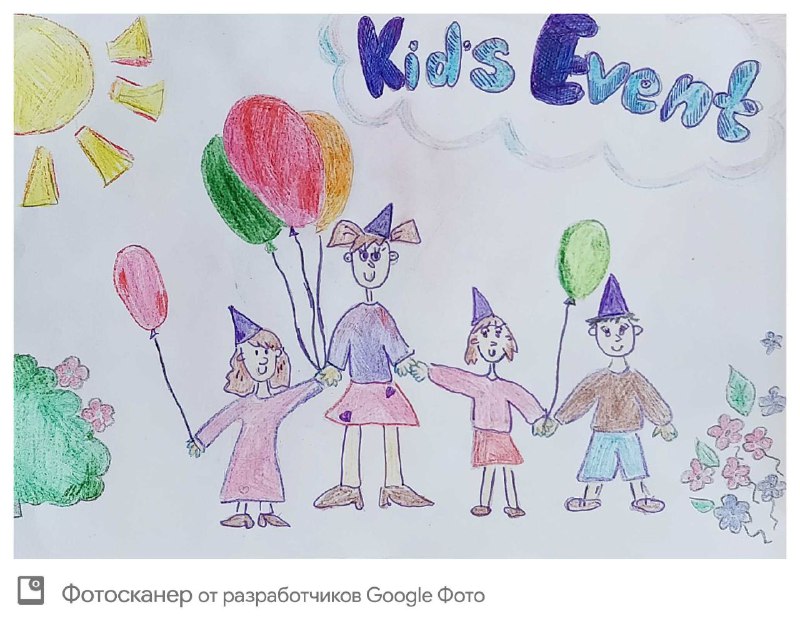 Kid's Event
Фотосканер от разработчиков Google Фото